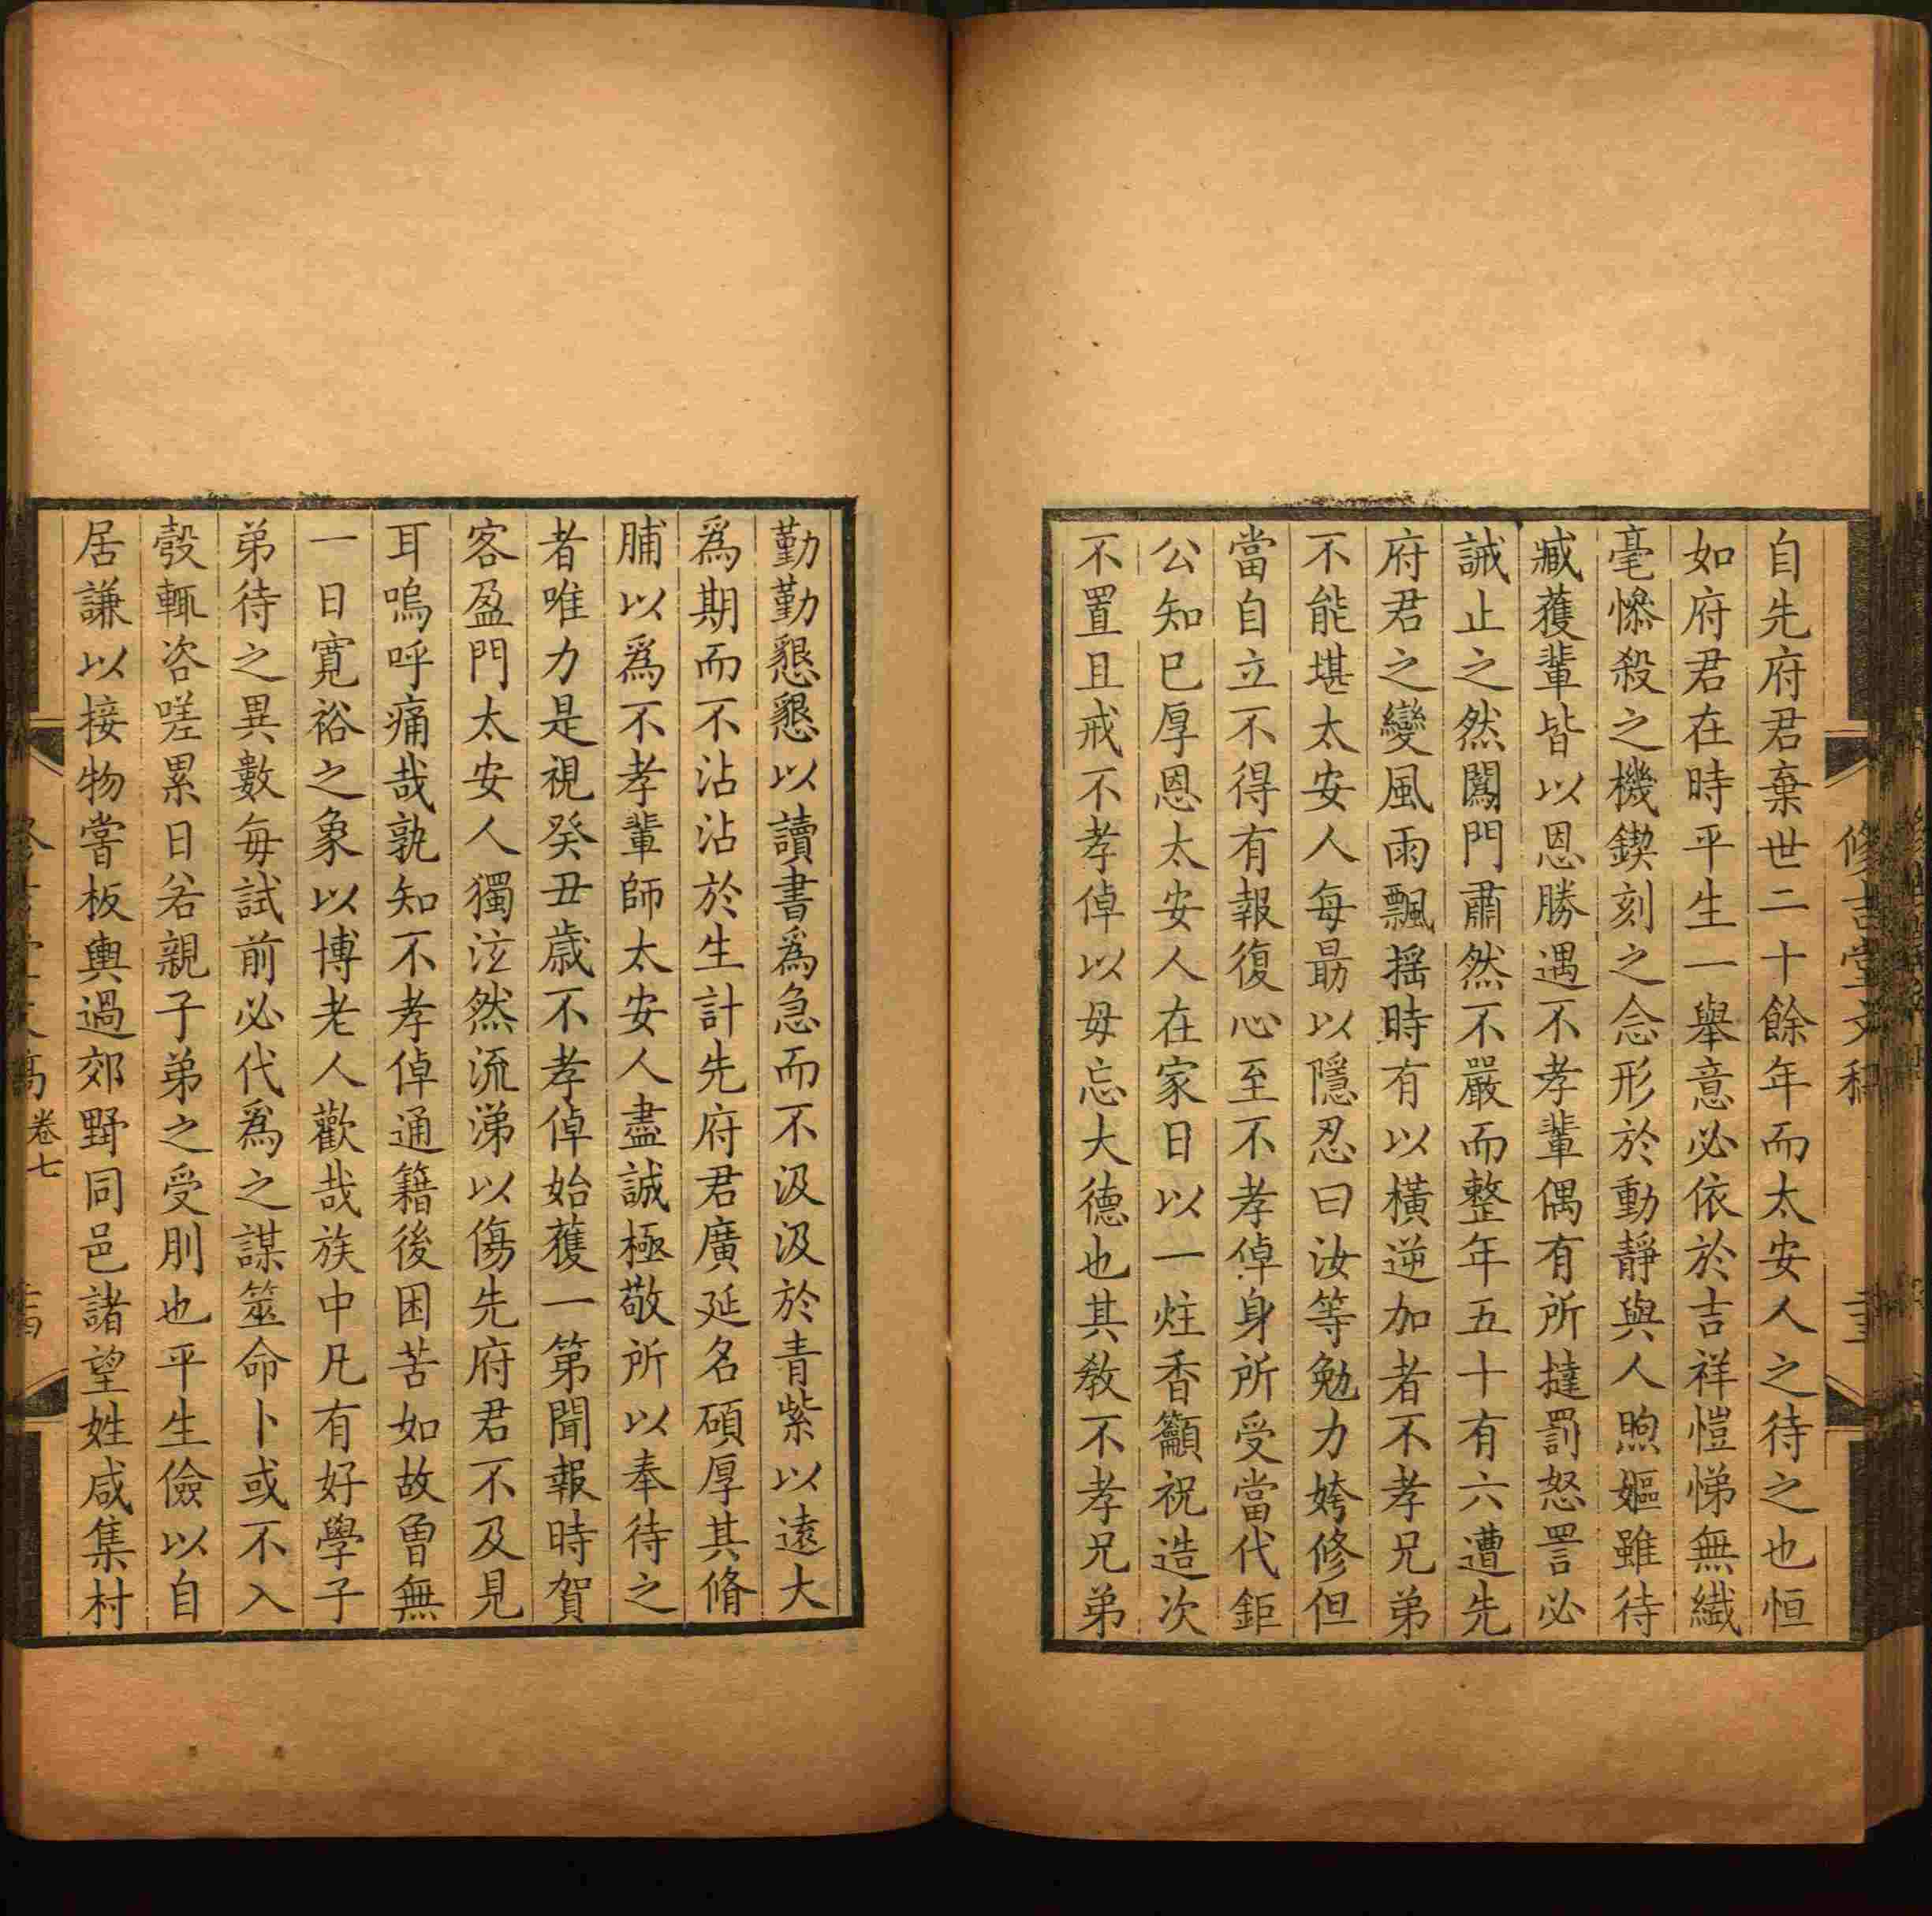 修吉堂文稿
自先府君棄世二十餘年而太安人之待之也恒
如府君在時平生一舉意必依於吉祥愷悌無纖
毫慘殺之機鍥刻之念形於動靜與人煦嫗雖待
臧獲輩皆以恩勝遇不孝輩偶有所撻罰怒詈必
誡止之然闖門肅然不嚴而整年五十有六遭先
府君之變風雨飄搖時有以橫逆加者不孝兄弟
不能堪太安人每勗以隱忍曰汝等勉力姱修但
當自立不得有報復心至不孝倬身所受當代鉅
公知巳厚恩太安人在家日以一炷香籲祝造次
不置且戒不孝倬以毋忘大德也其教不孝兄弟
勤勤懇懇以讀書爲急而不汲汲於青紫以遠大
爲期而不沾沾於生計先府君廣延名碩厚其脩
脯以爲不孝輩師太安人盡誠極敬所以奉待之
者唯力是視癸丑歲不孝倬始獲一第聞報時賀
客盈門太安人獨泫然流涕以傷先府君不及見
耳嗚呼痛哉孰知不孝倬通籍後困苦如故曾無
一日寬裕之象以博老人歡哉族中凡有好學子
弟待之異數每試前必代爲之謀筮命卜或不入
彀輒咨嗟累日若親子弟之受刖也平生儉以自
居謙以接物嘗板輿過郊野同邑諸望姓咸集村
卷七